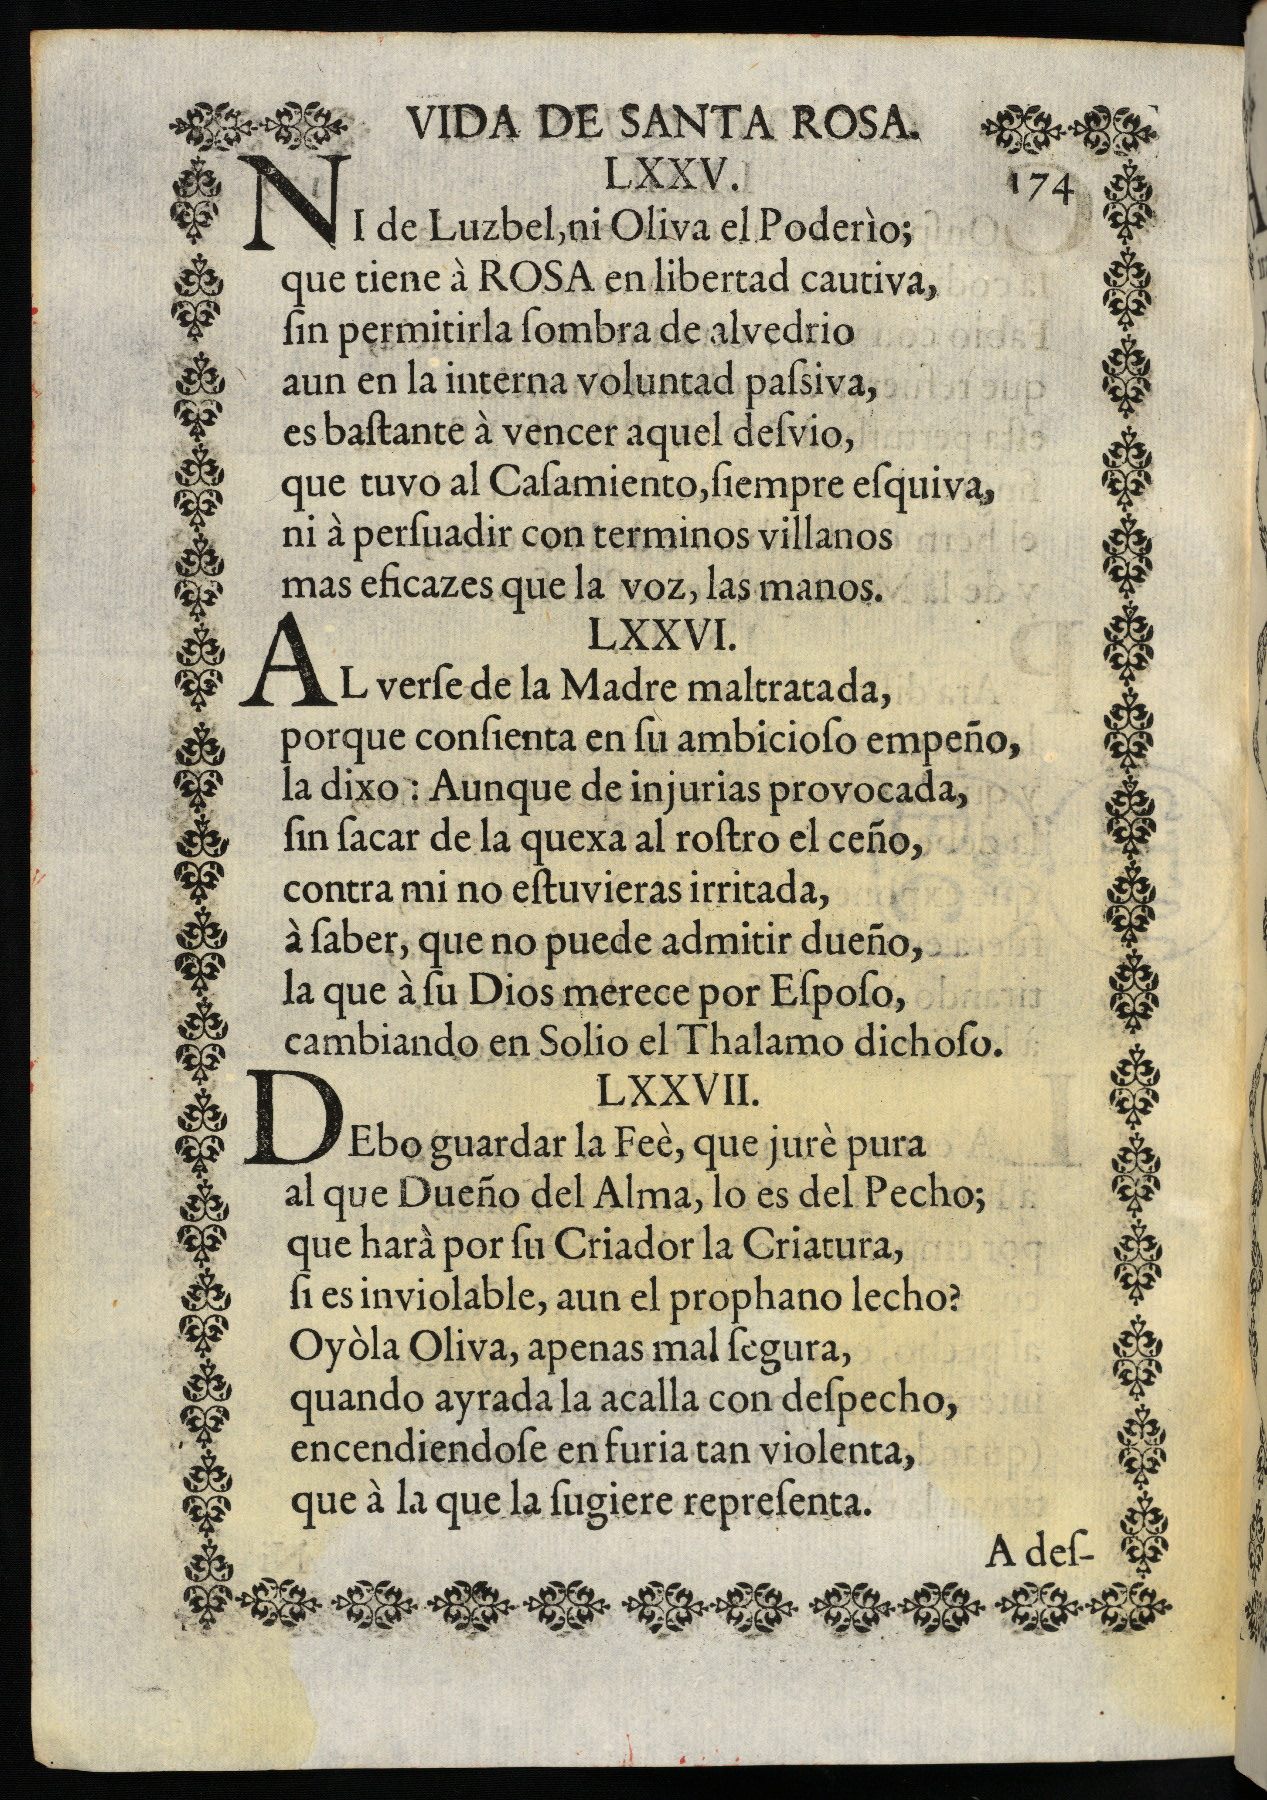 VIDA DE SANTA ROSA.
LXXV.
174
NI de Luzbel,ni Oliva el Poderìo;
que tiene à ROSA en libertad cautiva,
ſin permitirla ſombra de alvedrio
aun en la interna voluntad paſsiva,
es baſtante à vencer aquel deſvio,
que tuvo al Caſamiento,ſiempre eſquiva,
ni à perſuadir con terminos villanos
mas eficazes que la voz, las manos.
LXXVI.
AL verſe de la Madre maltratada,
porque conſienta en ſu ambicioſo empeño,
la dixo : Aunque de injurias provocada,
ſin ſacar de la quexa al roſtro el ceño,
contra mi no eſtuvieras irritada,
à ſaber, que no puede admitir dueño,
la que à ſu Dios merece por Eſpoſo,
cambiando en Solio el Thalamo dichoſo.
LXXVII.
DEbo guardar la Feè, que jurè pura
al que Dueño del Alma, lo es del Pecho;
que harà por ſu Criador la Criatura,
ſi es inviolable, aun el prophano lecho?
Oyòla Oliva, apenas mal ſegura,
quando ayrada la acalla con deſpecho,
encendiendoſe en furia tan violenta,
que à la que la ſugiere repreſenta.
A deſ-